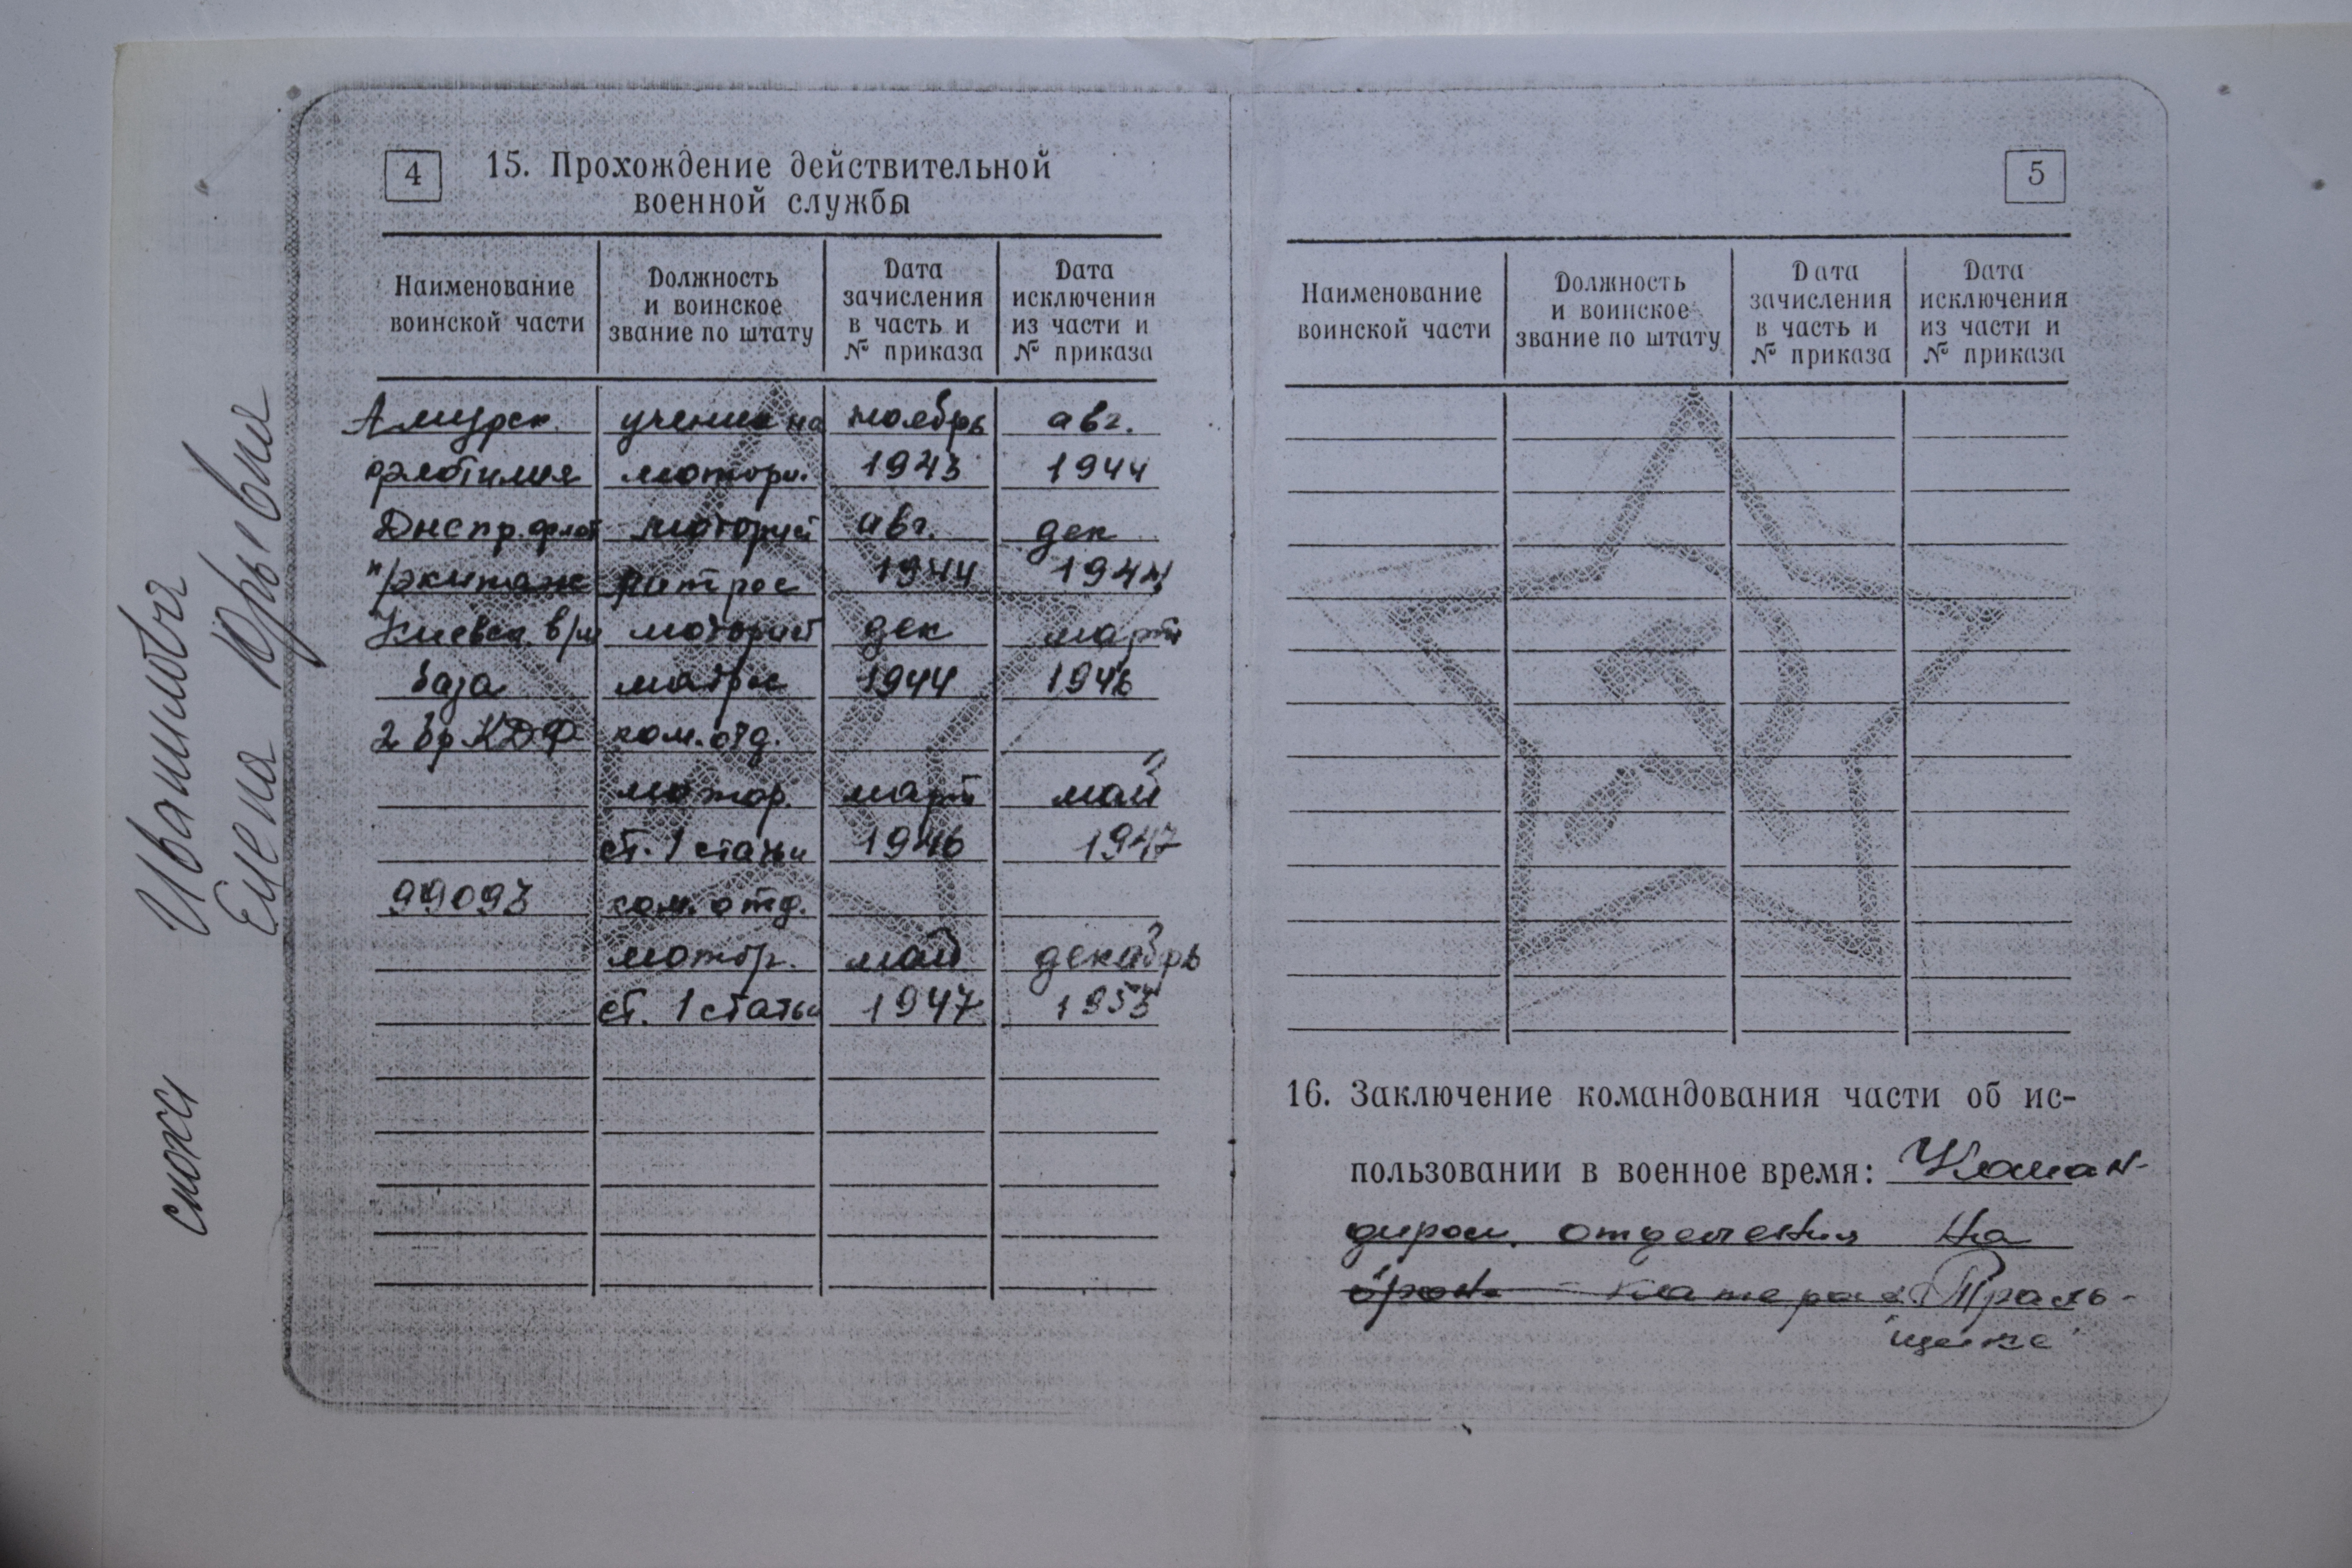 4
15. Прохождение действительной
военной службы
Наименование
воинской части
Должность
и воинское
звание по штату
Дата
зачисления
в часть и
№ приказа
Дата
исключения
из части и
№ приказа
Амурск. ученик на ноябрь авг.
флотилия мотори. 1943 1944
Днепр. флот моторист авг. дек
п/экипаж матрос 1944 1944
Киевск в/м моторист дек март
база матрос 1944 1946
2 бр КДФ ком. отд.
мотор. март май
ст. 1 статьи 1946 1947
99093 ком. отд.
мотор. май декабрь
ст. 1 статьи 1947 1953
5
Наименование
воинской части
Должность
и воинское
звание по штату
Дата
зачисления
в часть и
№ приказа
Дата
исключения
из части и
№ приказа
16. Заключение командования части об ис-
пользовании в военное время: Коман-
диром отделения на
брон- катерах Траль-
щике
Елена Юрьевна